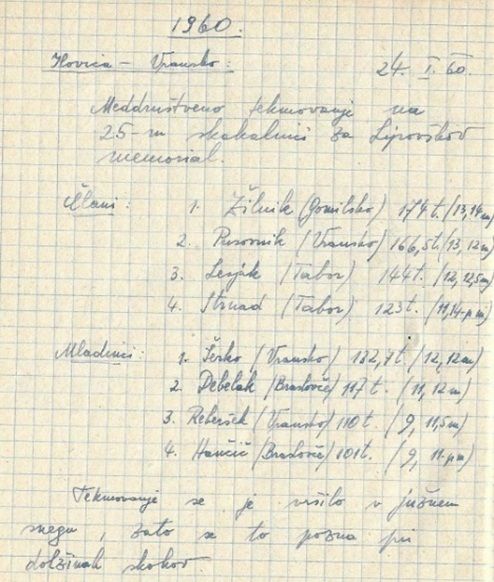 1960.
Ilovica - Vransko: 24. I. 60.
Meddruštveno tekmovanje na
25-m skakalnici za Lipovškov
memorial.
Člani: 1. Žilnik (Gomilsko) 174 t. (13, 14 m)
2. Pusovnik (Vransko) 166,5 t. (13, 12 m)
3. Lesjak (Tabor) 144 t. (12, 12,5 m)
4. Strnad (Tabor) 123 t. (11, 14-p m)
Mladinci: 1. Serko (Vransko) 132,7 t. (12, 12 m)
2. Debelak (Braslovče) 117 t. (11, 12 m)
3. Reberšek (Vransko) 110 t. (9, 11,5 m)
4. Hančič (Braslovče) 101 t. (9, 11-p m)
Tekmovanje se je vršilo v južnem
snegu, zato se to pozna pri
dolžinah skokov